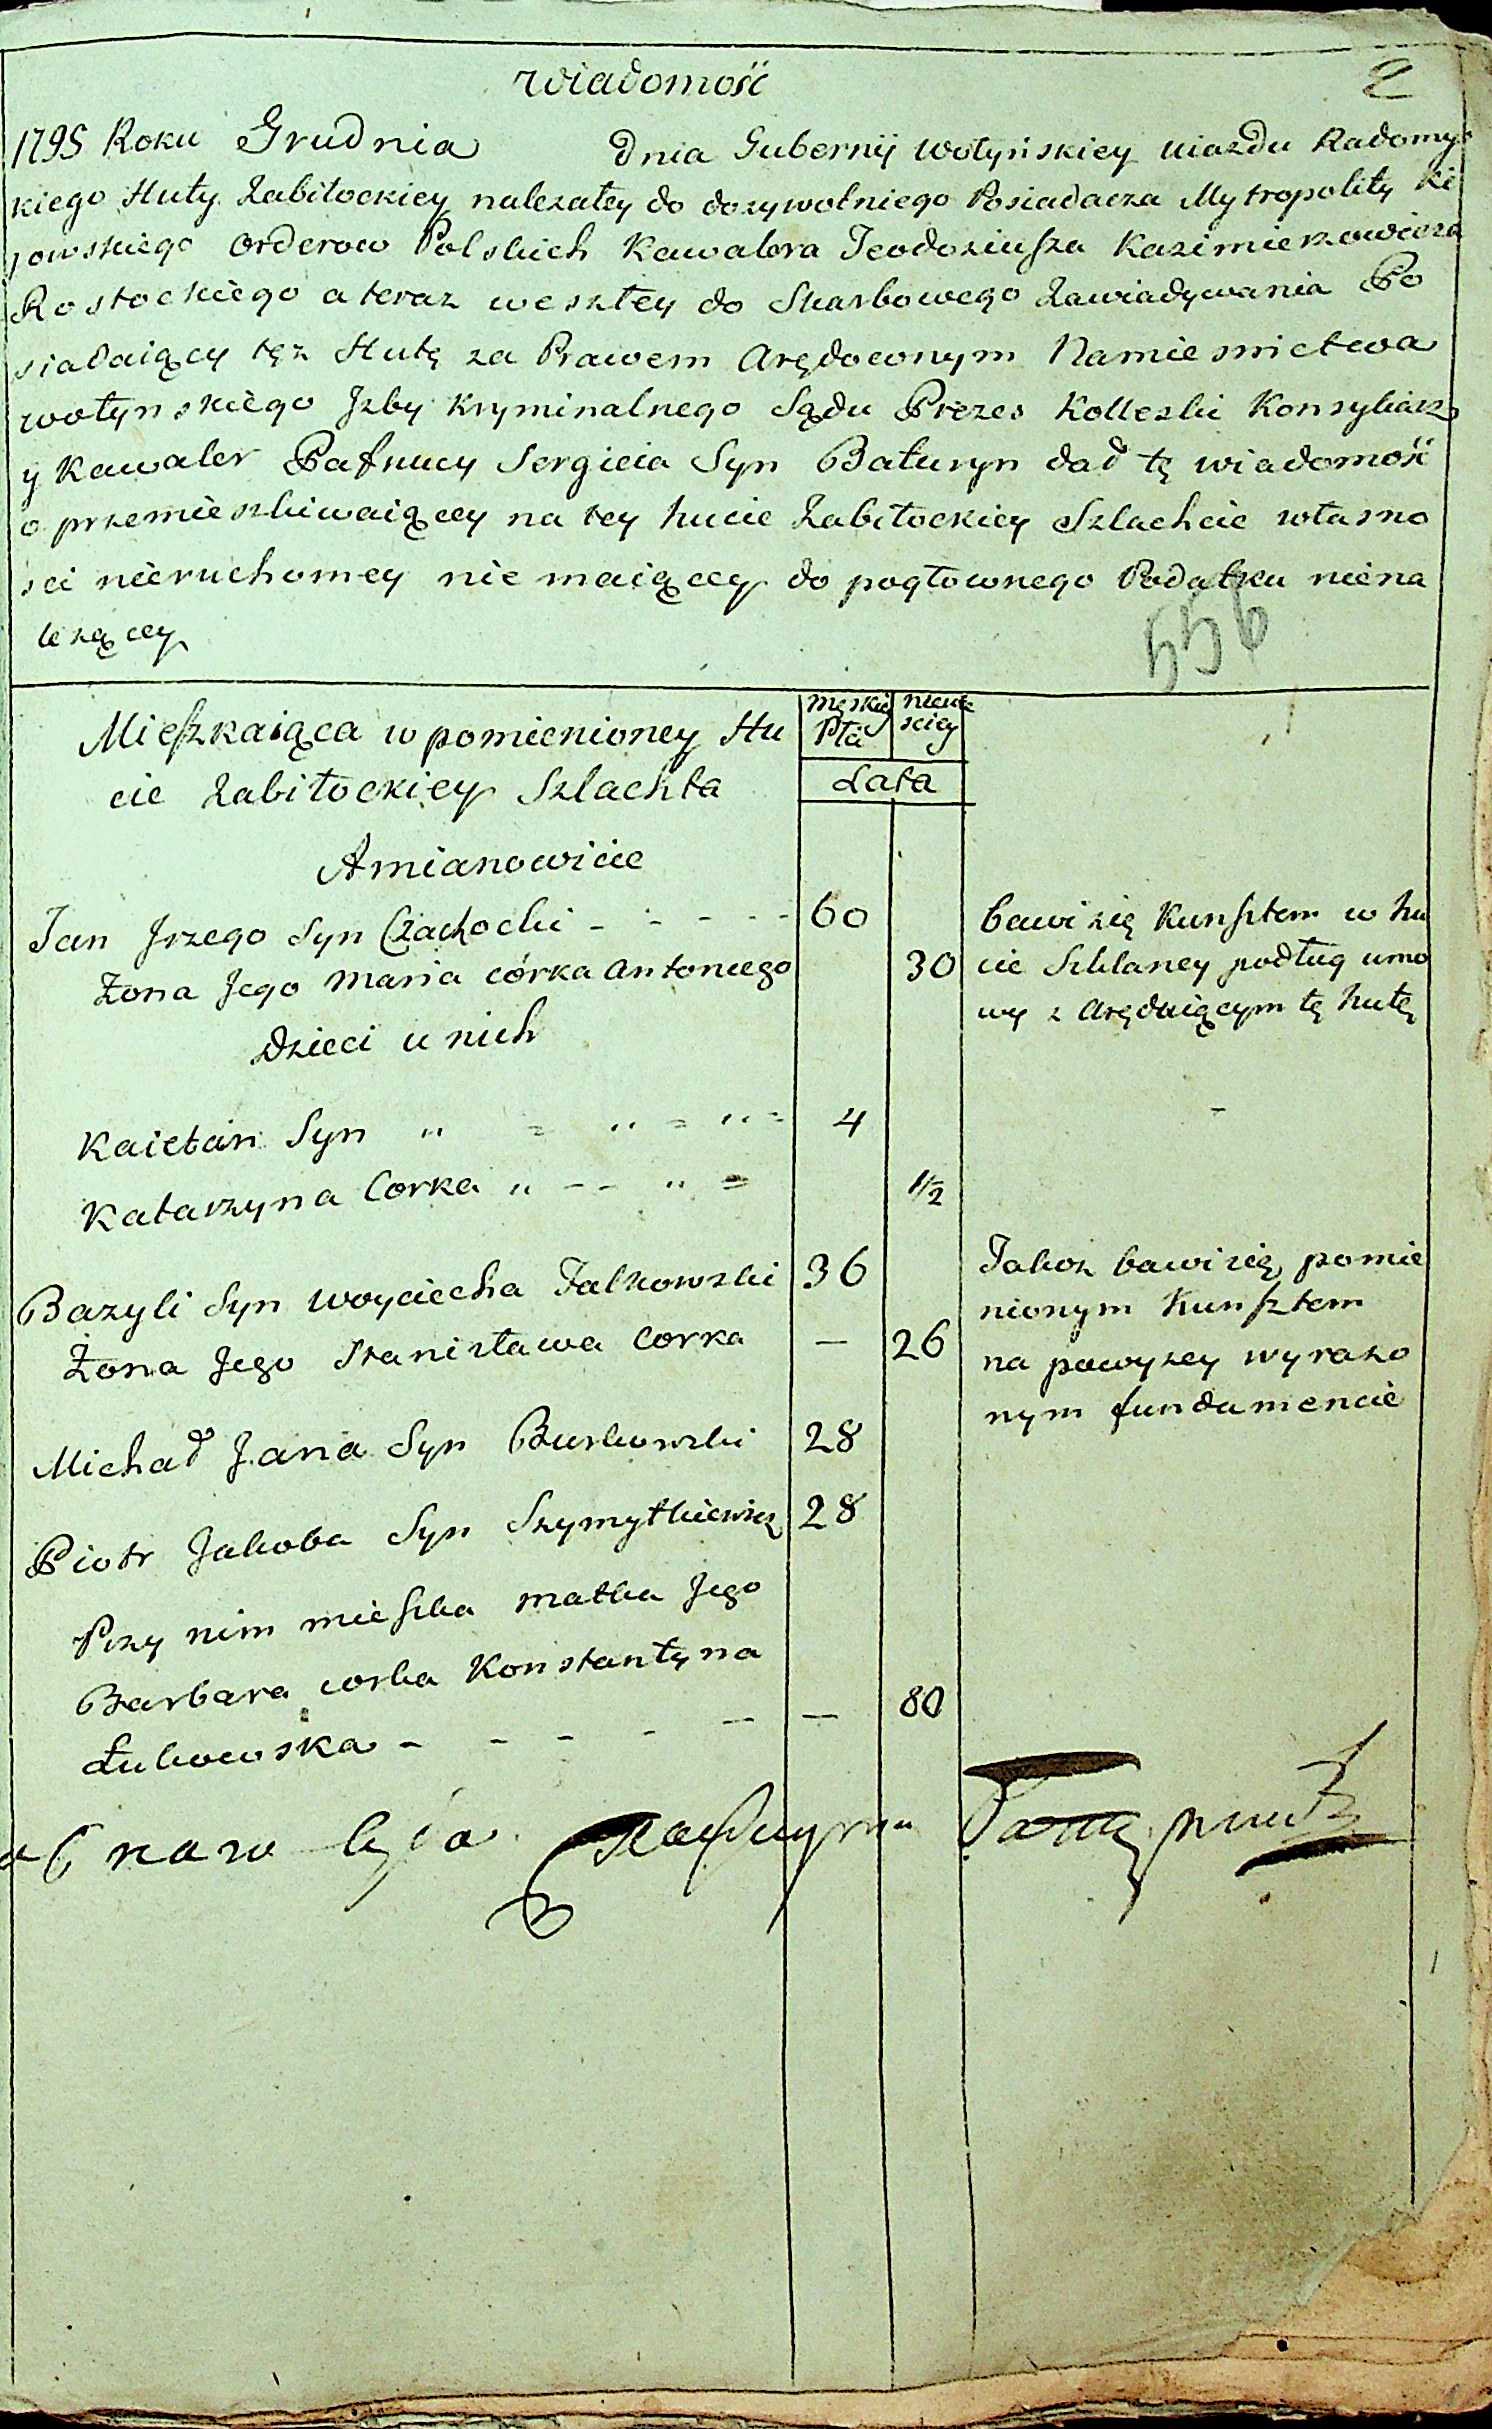 wiadomość
2
1795 Roku Grudnia dnia Gubernij Wołyńskiey uiazdu Radomys
kiego Huty Zabiłockiey nalezałey do dozywotniego Posiadacza Mytropolity Ki
jowskiego Orderow Polskich Kawalera Teodoziusza Kazimierzowicza
Rostockiego a teraz weszłey do Skarbowego Zawiadywania Po
siadaiący tęz Hutę za Prawem Arędownym Namiesnictwa
wołynskiego Jzby Kryminalnego Sądu Prezes Kolleski Konsyliarz
y Kawaler Pafnucy Sergieia Syn Baturyn dał tę wiadomość
o przemieszkiwaiącey na tey hucie Zabiłockiey Szlachcie własno
sci nieruchomey nie maiącey do pogłownego Podatku niena
lezącey
556
Mieszkaiąca w pomienioney Hu
cie Zabiłockiey Szlachta
Amianowicie
męskiey Płci
niewiesciey
Lata
Jan Jrzego Syn Czachocki - - - - 60
Zona Jego Maria córka Antoniego 30
Dzieci u nich
bawi się Kunsztem w hu
cie Szklaney podług umo
wy z Aręduiącym tę hutę
Kaietan Syn " = " = " = 4
Katarzyna Corka " - - " = 1/2
Bazyli Syn Woyciecha Falkowski 36
Żona Jego Stanisława Corka — 26
Takoz bawi się pomie
nionym Kunsztem
na powyzey wyrazo
nym fundamencie
Michał Jana Syn Burkowski 28
Piotr Jakoba Syn Szymytkiewicz 28
Przy nim mieszka matka Jego
Barbara corka Konstantyna
Łukowska - - - - — — 80